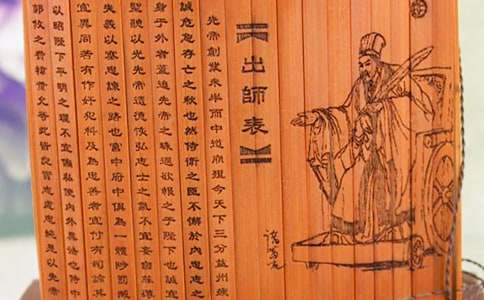 諸葛亮
出師表
先帝創業未半而中道崩殂今天下三分益州疲
誠危急存亡之秋也然侍衛之臣不懈於內忠志之
身于外者蓋追先帝之殊遇欲報之于陛下也誠宜
聖聽以光先帝遺德恢弘志士之氣不宜妄自菲薄
失義以塞忠諫之路也宮中府中俱為一體陟罰臧
宜異同若有作奸犯科及為忠善者宜付有司論其
以昭陛下平明之理不宜偏私使內外異法也侍中
郭攸之費禕董允等此皆良實志慮忠純是以先帝